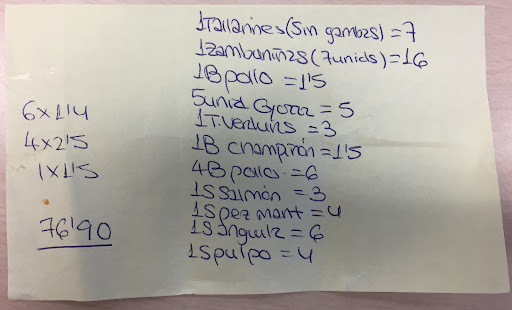 1Tallarines (sin gambas) = 7
1Zamburiñas (7unids) = 16
1B pollo = 1'5
5unid Gyoza = 5
1T verduras = 3
1B champiñón = 1'5
4B pollo = 6
1S Salmón = 3
1S pez mant = 4
1S anguila = 6
1S pulpo = 4
6 x 1'4
4 x 2'5
1 x 1'5
76'90